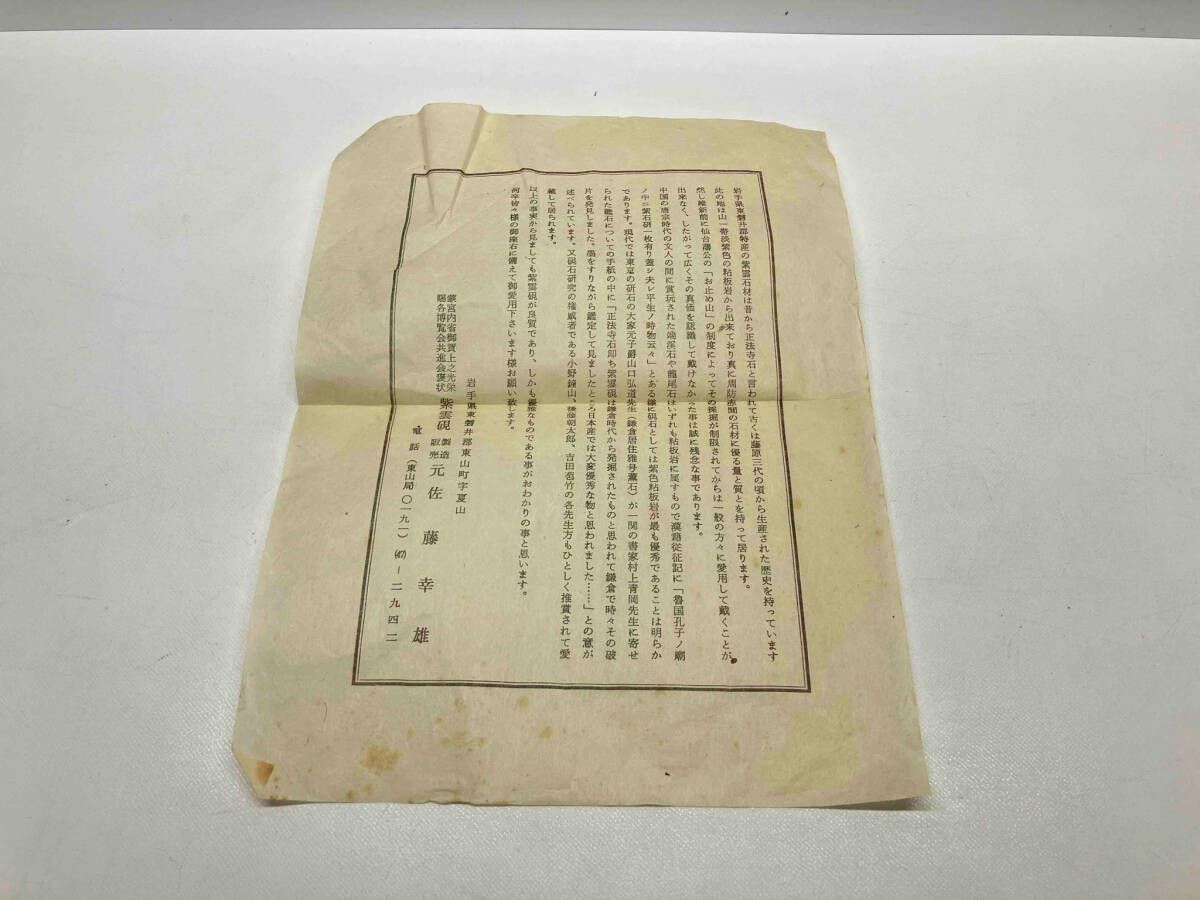 岩手県東磐井郡特産の紫雲石材は昔から正法寺石と言われて古くは藤原三代の頃から生産された歴史を持っています
此の地は山一帯淡紫色の粘板岩から出来ており真に周防赤間の石材に優る量と質とを持って居ります。
然し維新前に仙台藩公の「お止め山」の制度によってその採掘が制限されてからは一般の方々に愛用して戴くことが
出来なく、したがって広くその真価を認識して戴けなかった事は誠に残念な事であります。
中国の唐宗時代の文人の間に賞玩された端渓石や龍尾石はいずれも粘板岩に属すもので漢籍従征記に「魯国孔子ノ廟
ノ中ニ紫石硯一枚有り蓋シ夫レ平生ノ時物云々」とある様に硯石としては紫色粘板岩が最も優秀であることは明らか
であります。現代では東京の硯石の大家元子爵山口弘道先生(鎌倉居住雅号蘭石)が一関の書家村上青岡先生に寄せ
られた鑑石についての手紙の中に「正法寺石即ち紫雲硯は鎌倉時代から発掘されたものと思われて鎌倉で時々その破
片を発見しました。墨をすりながら鑑定して見ましたところ日本産では大変優秀な物と思われました……」との意が
述べられています。又硯石研究の権威者である小野鐘山、後藤朝太郎、吉田苞竹の各先生方もひとしく推賞されて愛
蔵して居られます。
以上の事実から見ましても紫雲硯が良質であり、しかも優雅なものである事がおわかりの事と思います。
何卒皆々様の御座右に備えて御愛用下さいます様お願い致します。
岩手県東磐井郡東山町字夏山
蒙宮内省御買上之光栄
賜各博覧会共進会褒状
紫雲硯 製造販売元 佐藤幸雄
電話(東山局〇一九一)(47)ー二九四二